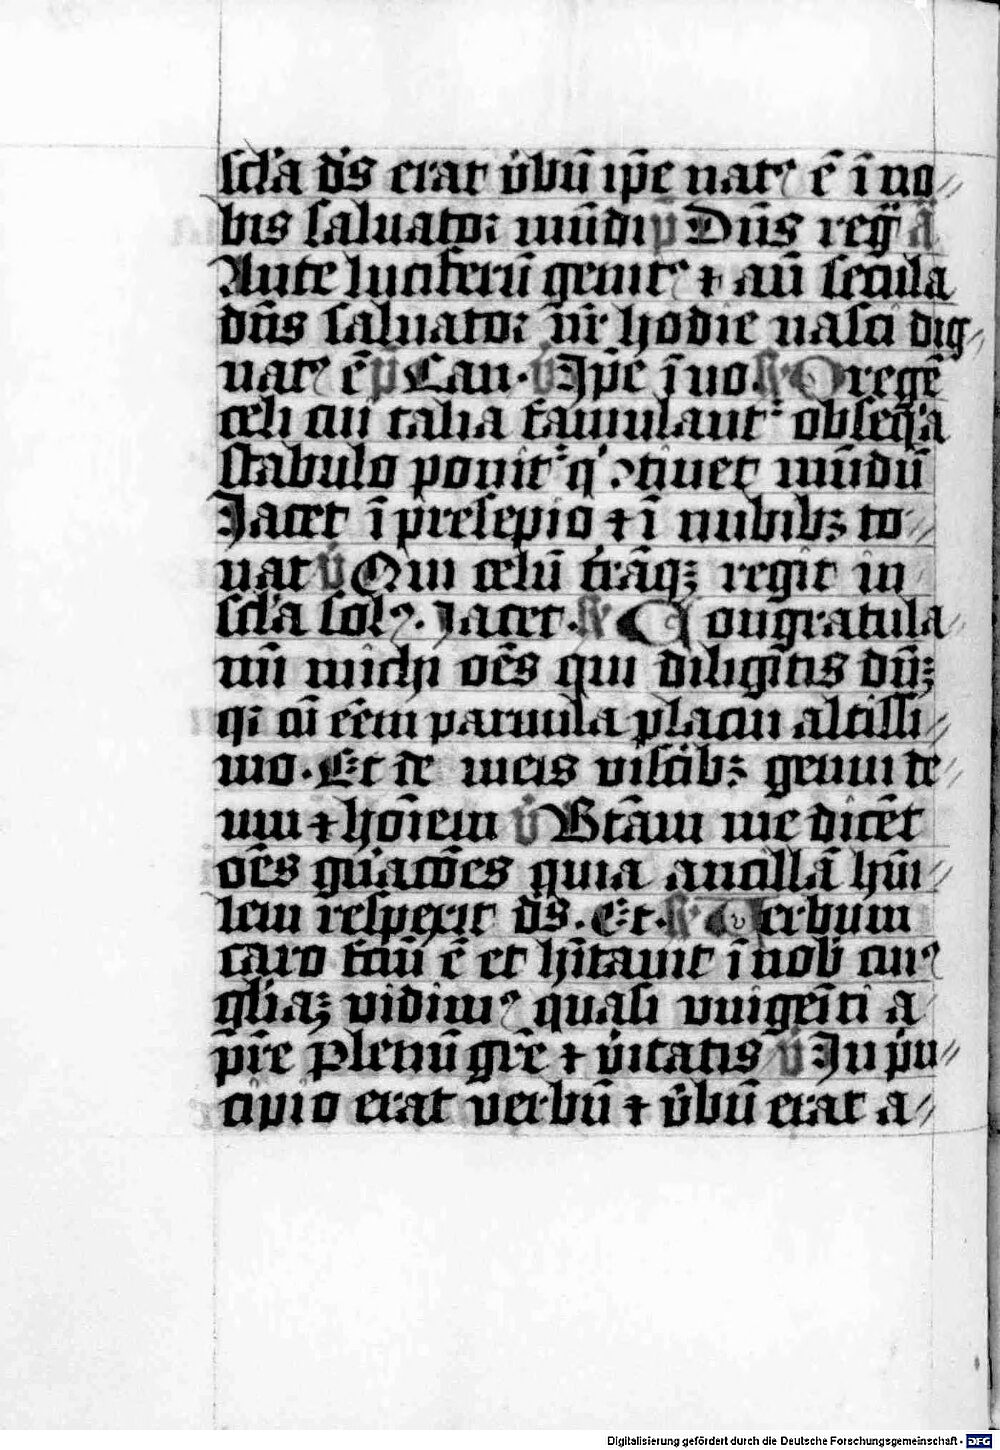 scl̓a dˢs erat v̓bū ip̄e natꝰ ē ī no⸗
bis saluatoꝛ mūdi p̄ Dūs reg̈ ā
Ante luciferū genitꝰ ⁊ an̄ secula
dn̄s saluatoꝛ nr̄ hodie nasci dig⸗
natꝰ ē p̄ Can. v̓ Ip̄e ī no. ℟ O regē
celi cui talia famulantᷣ obseq̓a
stabulo ponitᷣ q̓ ꝯtinet mūdū
Jacet ī presepio ⁊ ī nubibꝫ to⸗
nat v̓ Qui celū t̓rāqꝫ regit in
scl̓a solꝰ. Jacet. ℟ Congratula⸗
mī michi oēs qui diligītis dn̄ꝫ
qꝛ cū eēm paruula placui altissi⸗
mo. Et de meis viscibꝫ genui de⸗
um ⁊ hoīem v̓ Btām me dicēt
oēs gn̓acōes quia ancillā hūi⸗
lem respexit dˢs. Et. ℟ Verbum
caro fcm̄ ē et hītauit ī nob̓ cuiꝰ
gl̓iaꝫ vidimꝰ quasi vnigeīti a
pr̄e Plenū gr̄e ⁊ v̓itatis v̓ In p̓n⸗
cipio erat verbū ⁊ v̓bū erat a⸗
Digitalisierung gefördert durch die Deutsche Forschungsgemeinschaft - DFG